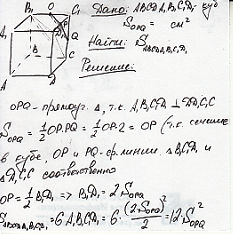 B₁ O C₁
A₁ D₁ P
Q
B C
A D
Дано: ABCDA₁B₁C₁D₁ куб
S_OPQ = см²
Найти: S_ABCDA₁B₁C₁D₁
Решение:
OPQ - прямоуг. Δ, т.к. A₁B₁C₁D₁ ⊥ DD₁C₁C
S_OPQ = 1/2 OP·PQ = 1/2 OP·2 = OP (т.к. сечение
в кубе, OP и PQ - ср. линии ΔB₁C₁D₁ и
ΔD₁C₁C соответственно
OP = 1/2 B₁D₁ => B₁D₁ = 2S_OPQ
S_ABCDA₁B₁C₁D₁ = 6 A₁B₁C₁D₁ = 6 · (2S_OPQ)²/2 = 12 S²_OPQ